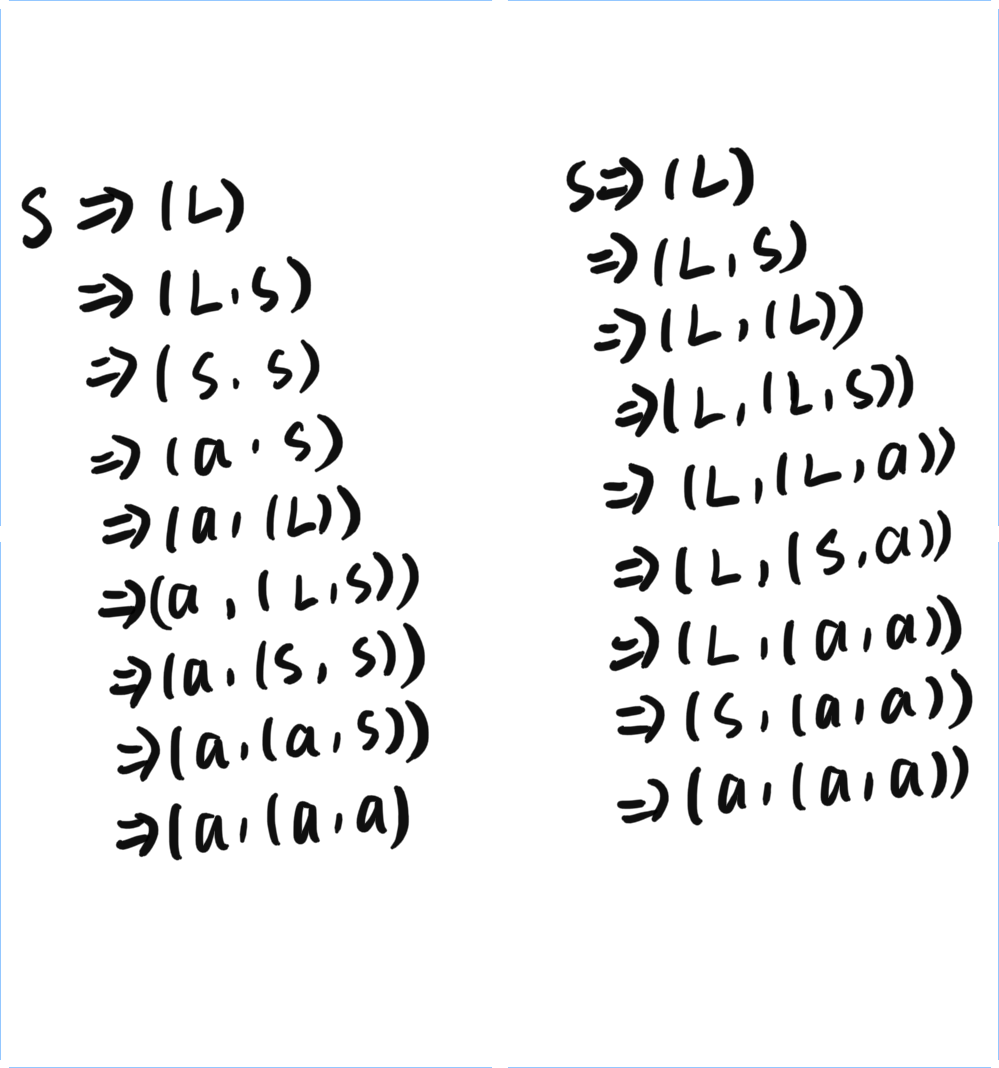 S ⇒ (L)
⇒ (L,S)
⇒ (S,S)
⇒ (a,S)
⇒ (a,(L))
⇒ (a,(L,S))
⇒ (a,(S,S))
⇒ (a,(a,S))
⇒ (a,(a,a)
S ⇒ (L)
⇒ (L,S)
⇒ (L,(L))
⇒ (L,(L,S))
⇒ (L,(L,a))
⇒ (L,(S,a))
⇒ (L,(a,a))
⇒ (S,(a,a))
⇒ (a,(a,a))